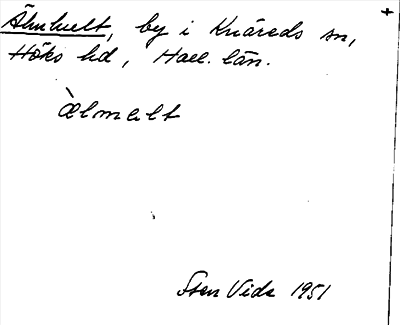 Älmhult, by i Knäreds sn,
Höks hd, Hall. län.
`ælmælt
Sten Vide 1951